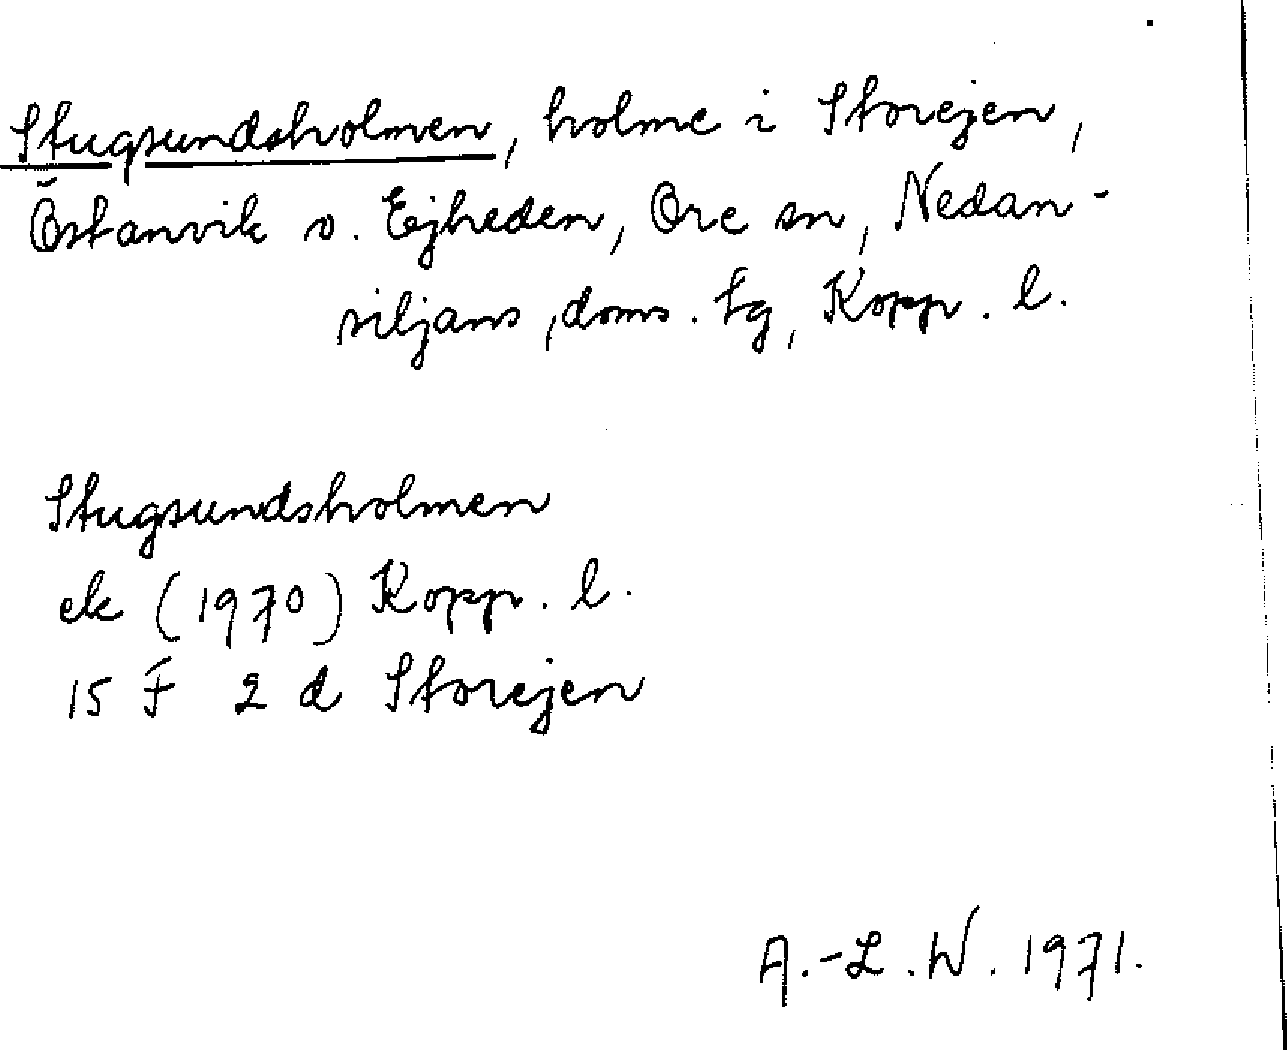 Stugsundsholmen, holme i Storejen,
Östanvik o. Ejheden, Ore sn, Nedan-
siljans, doms. tg, Kopp. l.
Stugsundsholmen
ek (1970) Kopp. l.
15 F 2 d Storejen
A.-L.W. 1971.